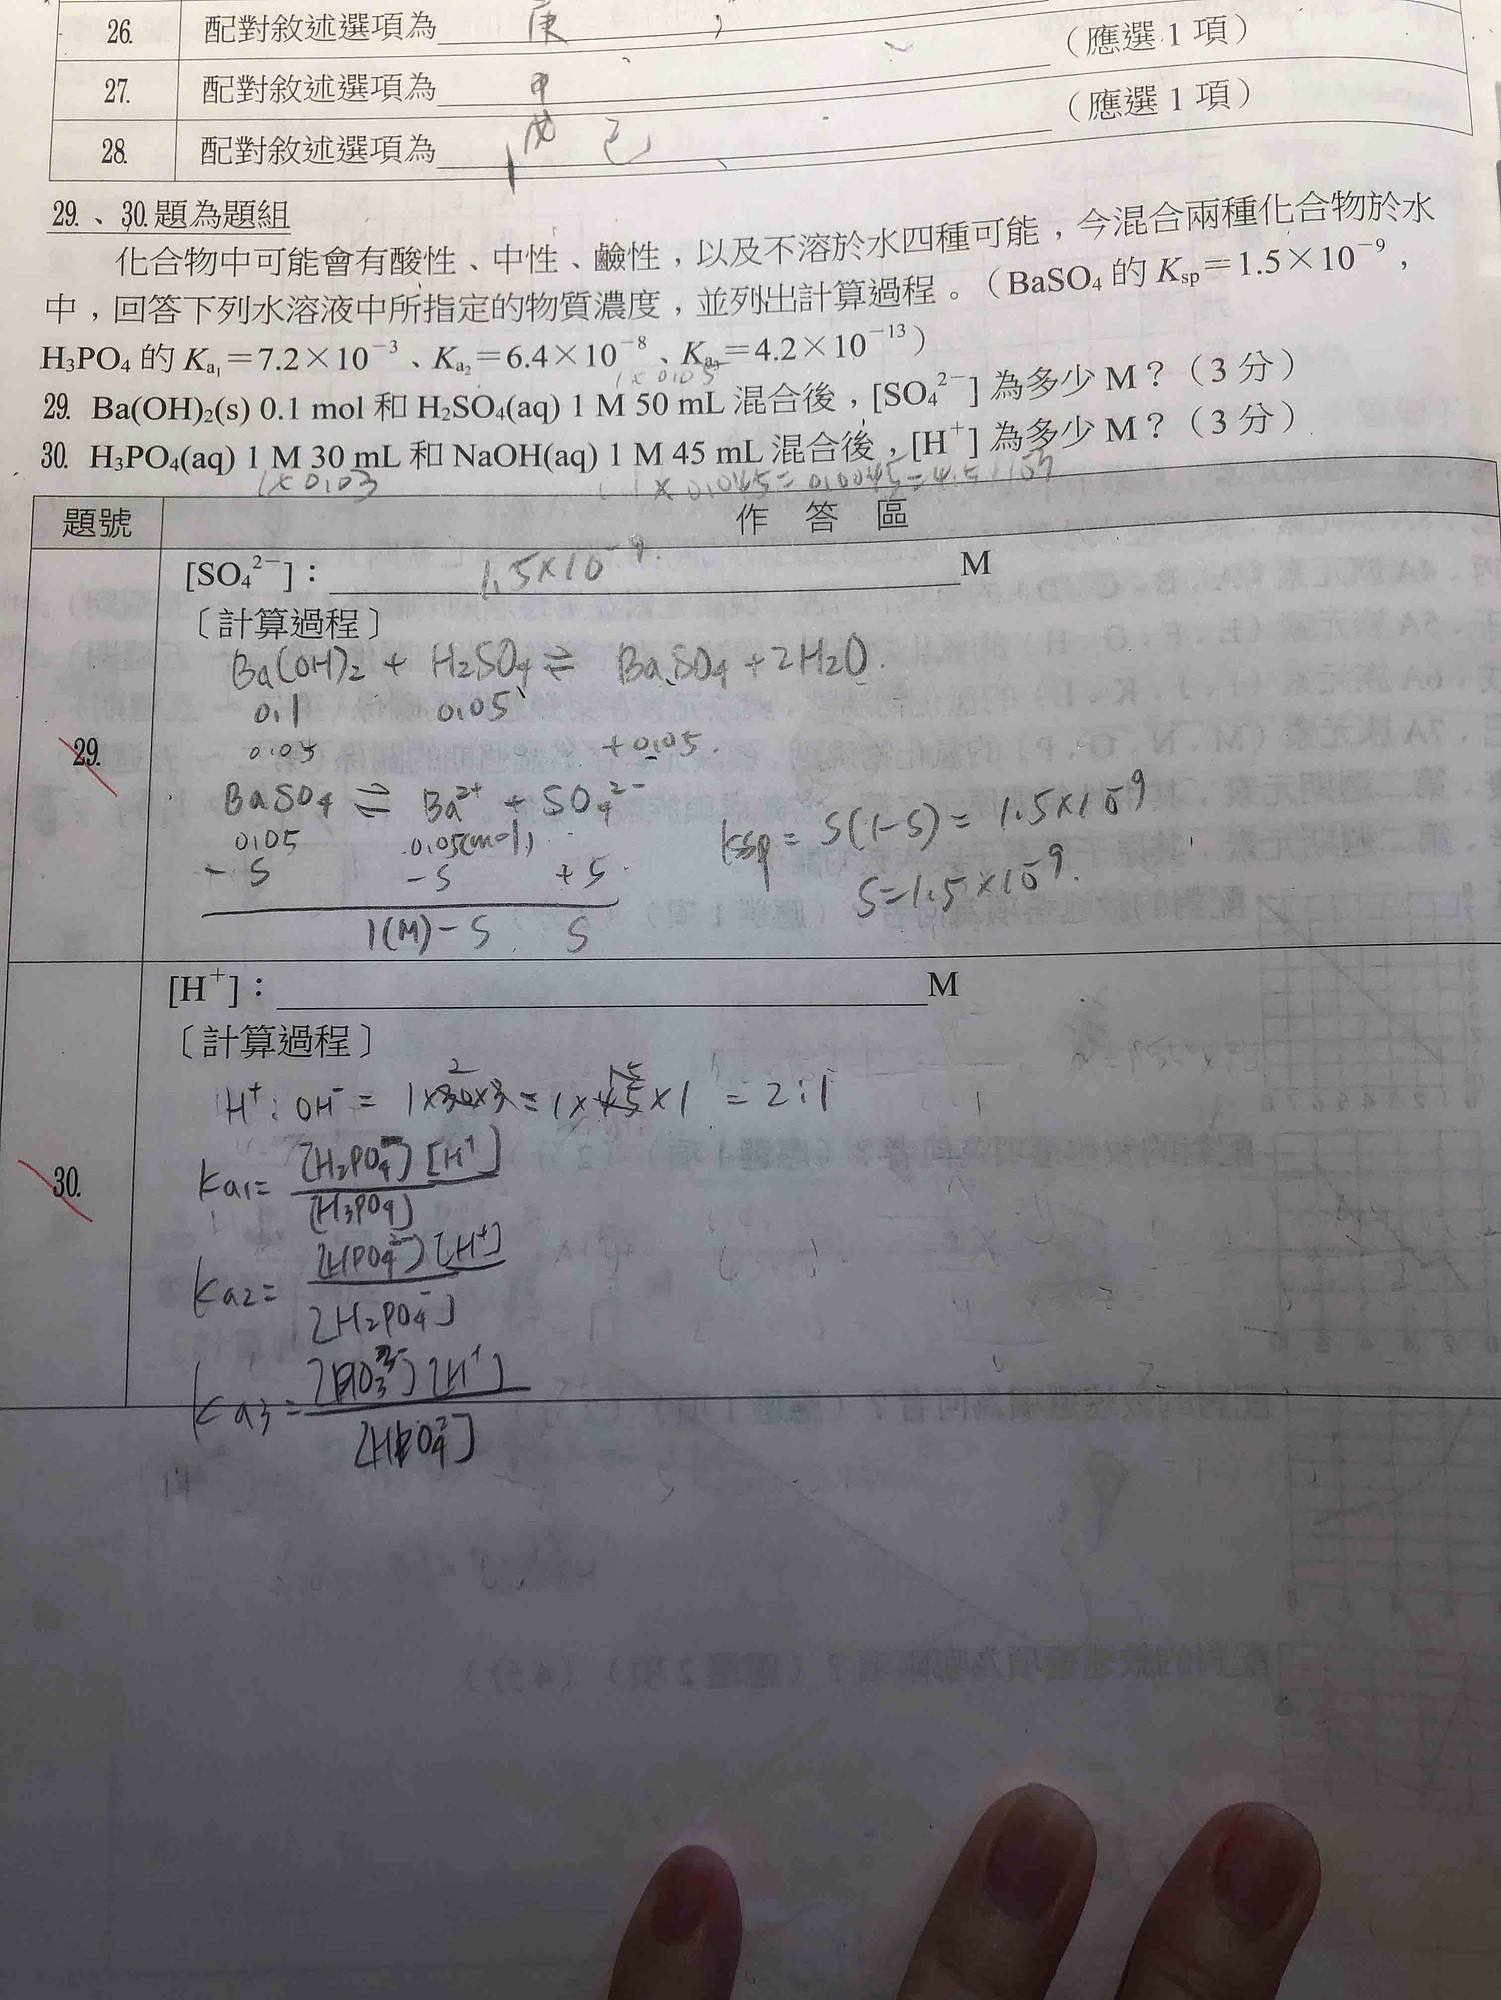 26. 配對敘述選項為 庚 (應選 1 項)
27. 配對敘述選項為 甲 (應選 1 項)
28. 配對敘述選項為 戊 己
29.、30.題為題組
化合物中可能會有酸性、中性、鹼性，以及不溶於水四種可能，今混合兩種化合物於水
中，回答下列水溶液中所指定的物質濃度，並列出計算過程。（BaSO₄ 的 Ksp＝1.5×10⁻⁹，
H₃PO₄ 的 Ka₁＝7.2×10⁻³、Ka₂＝6.4×10⁻⁸、Ka₃＝4.2×10⁻¹³）
1×0.05
29. Ba(OH)₂(s) 0.1 mol 和 H₂SO₄(aq) 1 M 50 mL 混合後，[SO₄²⁻] 為多少 M？（3 分）
30. H₃PO₄(aq) 1 M 30 mL 和 NaOH(aq) 1 M 45 mL 混合後，[H⁺] 為多少 M？（3 分）
1×0.03
題號 作 答 區
29.
[SO₄²⁻]： 1.5×10⁻⁹ M
〔計算過程〕
Ba(OH)₂ + H₂SO₄ ⇌ BaSO₄ + 2H₂O
0.1 0.05
0.05 +0.05
BaSO₄ ⇌ Ba²⁺ + SO₄²⁻
0.05 0.05(mol)
-S -S +S
1(M)-S S
Ksp = S(1-S) = 1.5×10⁻⁹
S=1.5×10⁻⁹
30.
[H⁺]： M
〔計算過程〕
H⁺ : OH⁻ = = 2:1
Ka1 = [H₂PO₄⁻][H⁺]
[H₃PO₄]
Ka2 = [HPO₄²⁻][H⁺]
[H₂PO₄⁻]
Ka3 = [H⁺]
[HPO₄²⁻]